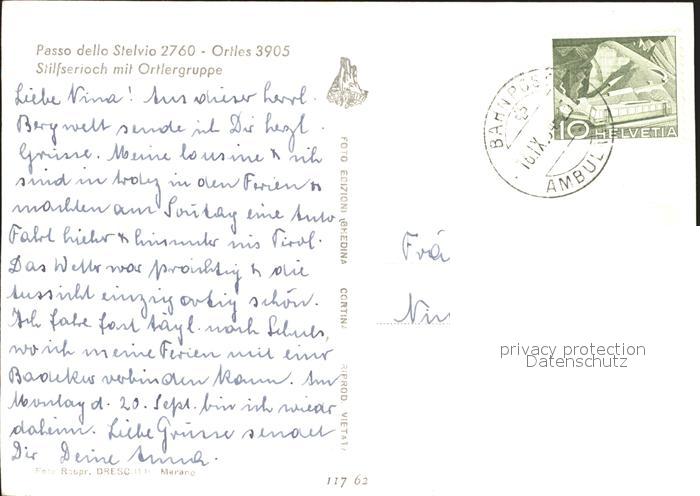 Passo dello Stelvio 2760 - Ortles 3905
Stilfserioch mit Ortlergruppe
Liebe Nina! Aus dieser herrl.
Bergwelt sende ich Dir herzl.
Grüsse. Meine Cousine & ich
sind in Ardez in den Ferien &
machten am Sonntag eine Auto
Fahrt hieher & hinunter ins Tirol.
Das Wetter war prächtig & die
Aussicht einzig artig schön.
Ich fahre fast tägl. nach Schuls,
wo ich meine Ferien mit einer
Badekur verbinden kann. Am
Montag d. 20. Sept. bin ich wieder
daheim. Liebe Grüsse sendet
Dir Deine Anna.
Foto Ropr. DRESCHER Merano
FOTO EDIZIONI GHEDINA CORTINA RIPROD. VIETATA
117 62
BAHNPOST
16.IX
AMBULANT
10 HELVETIA
Frä
Nin
privacy protection
Datenschutz